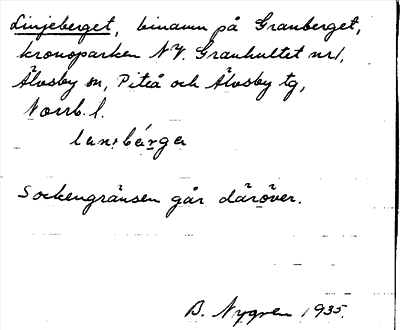 Linjeberget, binamn på Granberget,
kronoparken NV. Granhultet nr 1,
Älvsby sn, Piteå och Älvsby tg,
Norrb. l.
Sockengränsen går däröver.
B. Nygren 1935.